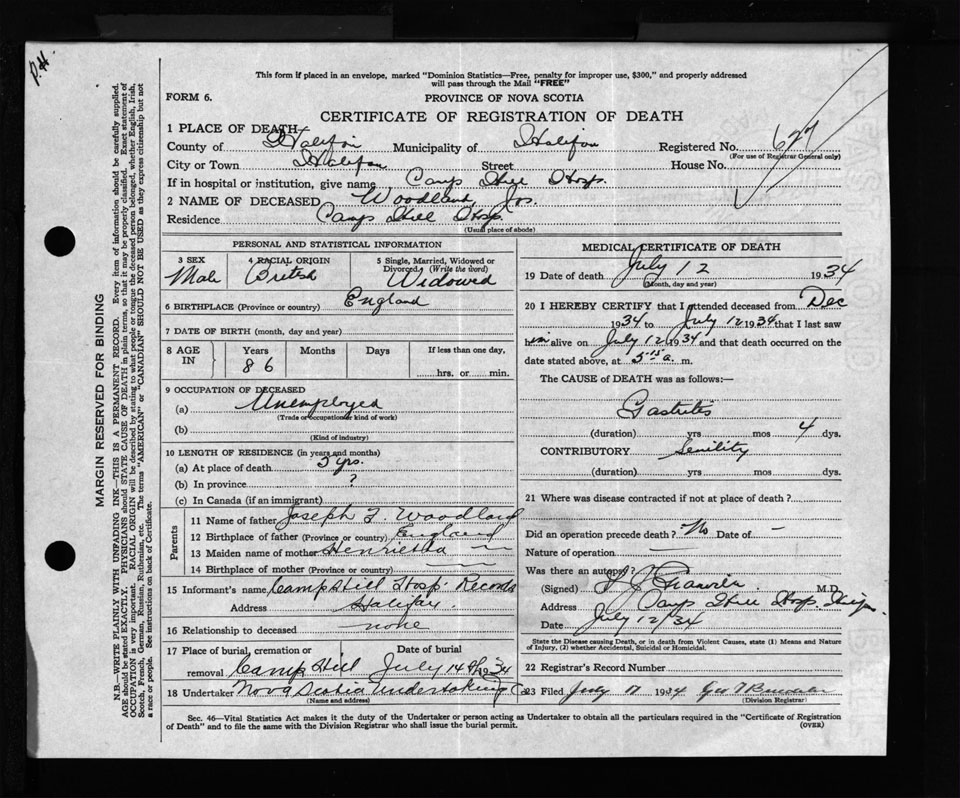 P.H.
This form if placed in an envelope, marked "Dominion Statistics—Free, penalty for improper use, $300," and properly addressed
will pass through the Mail "FREE"
FORM 6.
PROVINCE OF NOVA SCOTIA
CERTIFICATE OF REGISTRATION OF DEATH
1 PLACE OF DEATH—
County of Halifax Municipality of Halifax Registered No. 627
(For use of Registrar General only)
City or Town Halifax Street House No.
If in hospital or institution, give name Camp Hill Hosp.
2 NAME OF DECEASED Woodland Jos.
Residence Camp Hill Hosp.
(Usual place of abode)
PERSONAL AND STATISTICAL INFORMATION
3 SEX Male
4 RACIAL ORIGIN British
5 Single, Married, Widowed or Divorced (Write the word) Widowed
6 BIRTHPLACE (Province or country) England
7 DATE OF BIRTH (month, day and year)
8 AGE IN Years 86 Months Days If less than one day, hrs. or min.
9 OCCUPATION OF DECEASED
(a) Unemployed
(Trade or occupation or kind of work)
(b)
(Kind of industry)
10 LENGTH OF RESIDENCE (in years and months)
(a) At place of death 5 yrs.
(b) In province ?
(c) In Canada (if an immigrant)
Parents
11 Name of father Joseph Woodland
12 Birthplace of father (Province or country) England
13 Maiden name of mother Henrietta —
14 Birthplace of mother (Province or country) —
15 Informant's name Camp Hill Hosp. Records
Address Halifax.
16 Relationship to deceased none
17 Place of burial, cremation or removal Camp Hill Date of burial July 14th 1934
18 Undertaker Nova Scotia Undertaking Co
(Name and address)
MEDICAL CERTIFICATE OF DEATH
19 Date of death July 12 1934
(Month, day and year)
20 I HEREBY CERTIFY that I attended deceased from Dec
1934 to July 12 1934 that I last saw
him alive on July 12 1934 and that death occurred on the
date stated above, at 5.15 a. m.
The CAUSE OF DEATH was as follows:—
Gastritis
(duration) yrs mos 4 dys.
CONTRIBUTORY Senility
(duration) yrs mos dys.
21 Where was disease contracted if not at place of death?
Did an operation precede death? No Date of —
Nature of operation —
Was there an autopsy?
(Signed) M.D.
Address Camp Hill Hosp.
Date July 12/34
State the Disease causing Death, or in death from Violent Causes, state (1) Means and Nature
of Injury, (2) whether Accidental, Suicidal or Homicidal.
22 Registrar's Record Number
23 Filed July 1934
(Division Registrar)
Sec. 46—Vital Statistics Act makes it the duty of the Undertaker or person acting as Undertaker to obtain all the particulars required in the "Certificate of Registration
of Death" and to file the same with the Division Registrar who shall issue the burial permit.
(OVER)
MARGIN RESERVED FOR BINDING
N.B.—WRITE PLAINLY WITH UNFADING INK—THIS IS A PERMANENT RECORD. Every item of information should be carefully supplied.
AGE should be stated EXACTLY. PHYSICIANS should STATE CAUSE OF DEATH in plain terms, so that it may be properly classified. Exact statement of
OCCUPATION is very important. RACIAL ORIGIN will be described by stating to what people or tongue the deceased person belonged, whether English, Irish,
Scotch, French, German, Russian, Ruthenian, etc. The terms "AMERICAN" or "CANADIAN" SHOULD NOT BE USED as they express citizenship but not
a race or people. See instructions on back of Certificate.